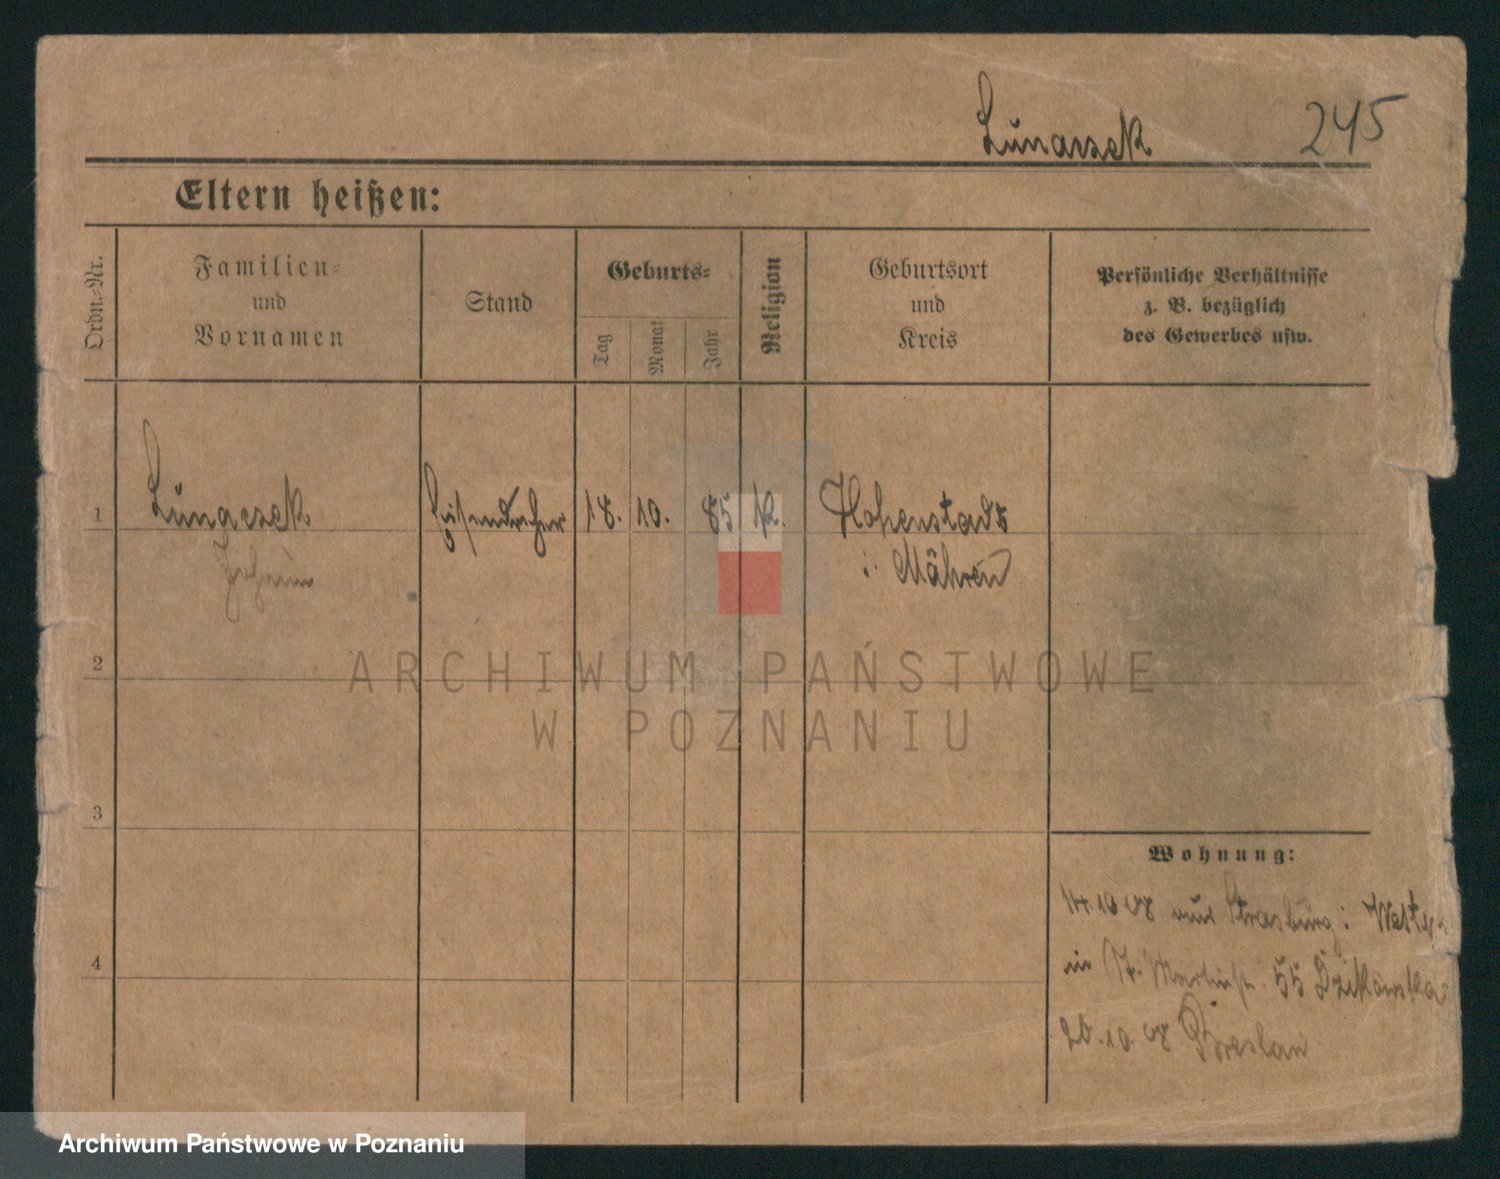 Lunaczek 245
Eltern heißen:
Ordn.-Nr.
Familien-
und
Vornamen
Stand
Geburts-
Tag
Monat
Jahr
Religion
Geburtsort
und
Kreis
Persönliche Verhältnisse
z. B. bezüglich
des Gewerbes usw.
1 Lunaczek Eisendreher 18. 10. 85 k. Hohenstadt
Johann i. Mähren
2
3
4
ARCHIWUM PAŃSTWOWE
W POZNANIU
Wohnung:
14.10 08 aus Strasburg i. Westp.
in St. Martinstr. 55 Dzikowska
20.10.08 Breslau
Archiwum Państwowe w Poznaniu